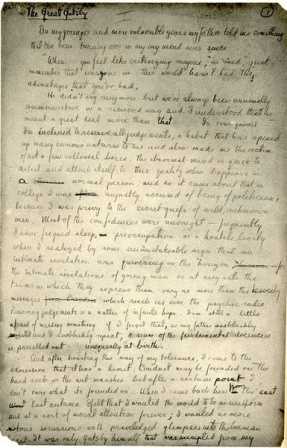 The Great Gatsby
In my younger and more vulnerable years my father told me something
that I've been turning over in my mind ever since
When you feel like criticizing anyone, he said, just
remember that everyone in this world hasn't had the
advantages that you've had.
He didn't say any more but we've always been unusually
communicative in a reserved way and I understood that he
meant a great deal more than that. In consequence
I'm inclined to reserve all judgements, a habit that has opened up
many curious natures to me and also made me the victim
of not a few
The abnormal mind is quick to
detect and attach itself to this quality when it appears in
a normal person and so it came about that in
college I was unjustly accused of being a politician,
because I was privy to the secret griefs of wild, unknown
men. Most of the confidences were unsought — frequently
I have feigned sleep, preoccupation, or a hostile levity
when I realized by some unmistakable sign that an
intimate revelation was quivering on the horizon
the intimate revelations of young men or at any rate the
terms in which they express them vary no more than the
messages which reach us over the
Reserving judgements is a matter of infinite hope. I am still a little
afraid of missing something if I forget that, as my father snobbishly
suggested and I snobbishly repeat, a sense of the fundamental decencies
is parcelled out unequally at birth.
And after boasting this way of my tolerance, I come to the
admission that it has a limit. Conduct may be founded on the
hard rock or the wet marshes but after a certain point I
don't care what it's founded on. When I came back from the east
last autumn I felt that I wanted the world to be in uniform
and at a sort of moral attention forever; I wanted no more
riotous excursions with privileged glimpses into the human
heart. It was only Gatsby himself that was exempted from my